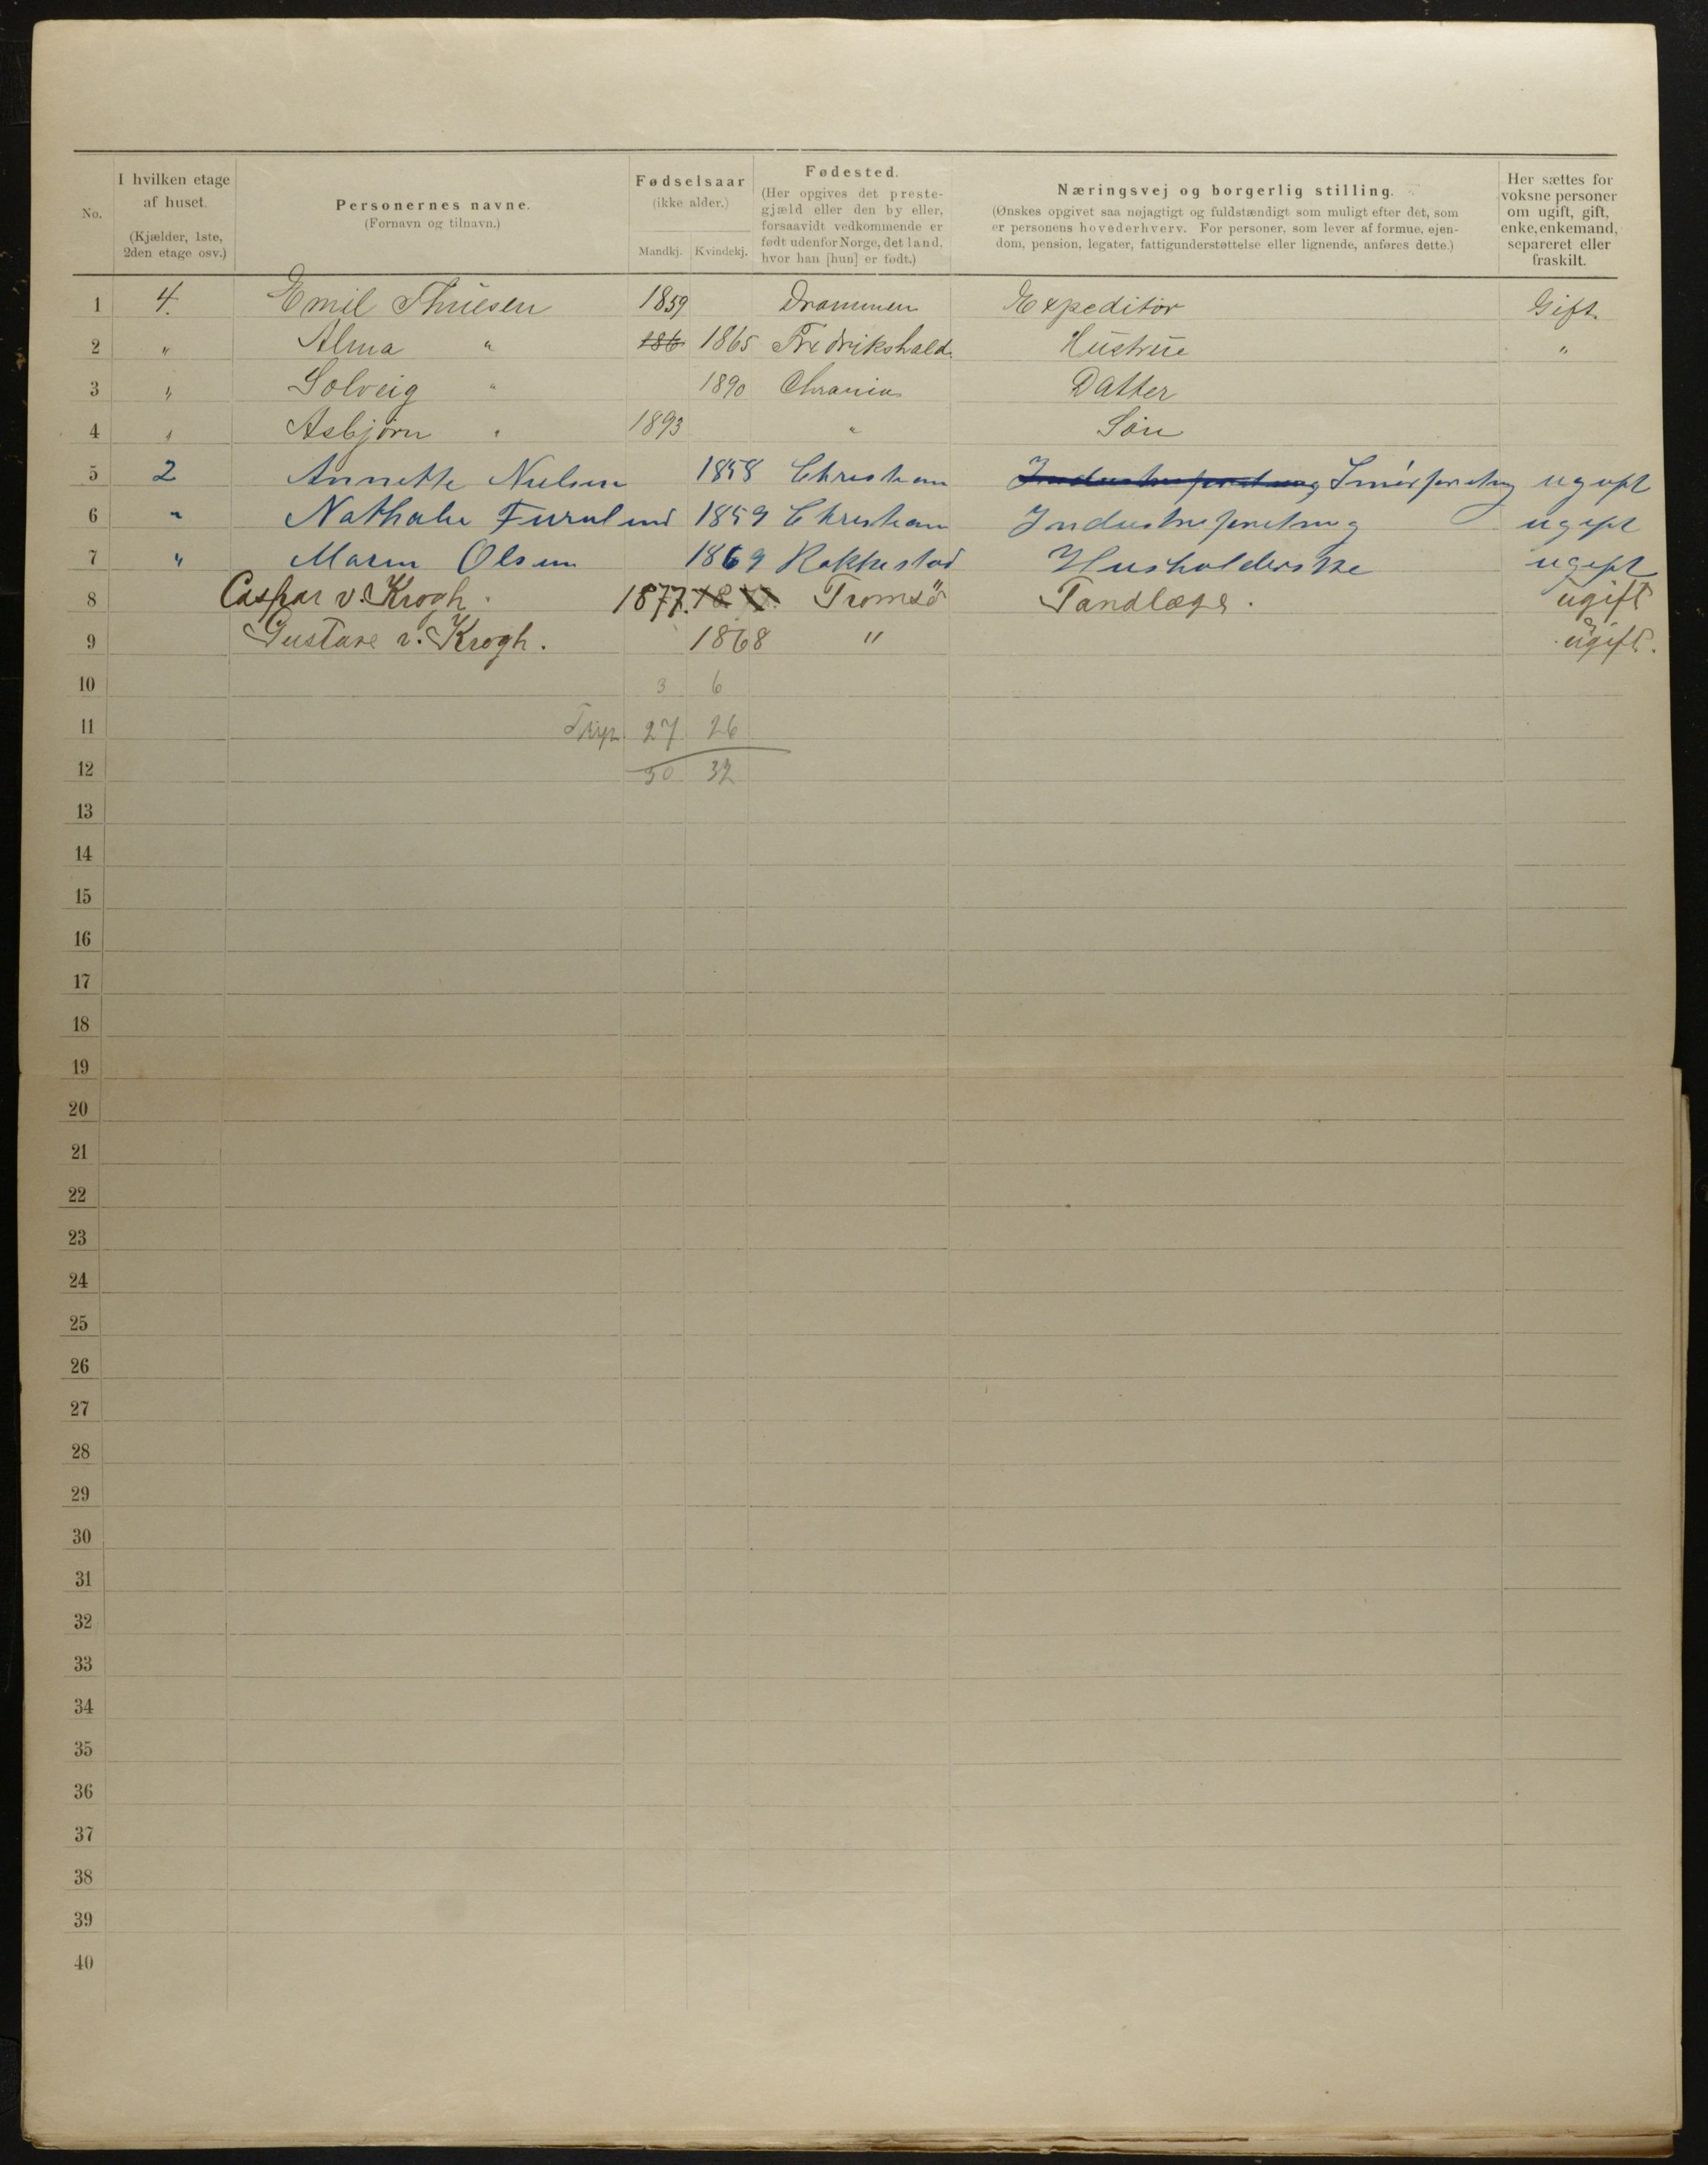 No.
I hvilken etage af huset. (Kjælder, 1ste, 2den etage osv.)
Personernes navne. (Fornavn og tilnavn.)
Fødselsaar (ikke alder.) Mandkj. Kvindekj.
Fødested. (Her opgives det prestegjæld eller den by eller, forsaavidt vedkommende er født udenfor Norge, det land, hvor han [hun] er født.)
Næringsvej og borgerlig stilling. (Ønskes opgivet saa nøjagtigt og fuldstændigt som muligt efter det, som er personens hovederhverv. For personer, som lever af formue, ejendom, pension, legater, fattigunderstøttelse eller lignende, anføres dette.)
Her sættes for voksne personer om ugift, gift, enke, enkemand, separeret eller fraskilt.
1 4. Emil Thuesen 1859 Drammen Expeditør Gift.
2 " Alma " 186 1865 Fredrikshald. Hustrue "
3 " Solveig " 1890 Chrania Datter
4 " Asbjørn " 1893 " Søn
5 2 Annette Nielsen 1858 Christiania Industriforretning Smørforretng ugift
6 " Nathalie Furulund 1859 Christiania Industriforretning ugift
7 " Maren Olsen 1869 Rakkestad Husholderske ugift
8 Caspar v. Krogh. 1877. Tromsö Tandlæge. ugift
9 Gustave v. Krogh. 1868 " ugift.
10 3 6
11 27 26
12 30 32
13
14
15
16
17
18
19
20
21
22
23
24
25
26
27
28
29
30
31
32
33
34
35
36
37
38
39
40